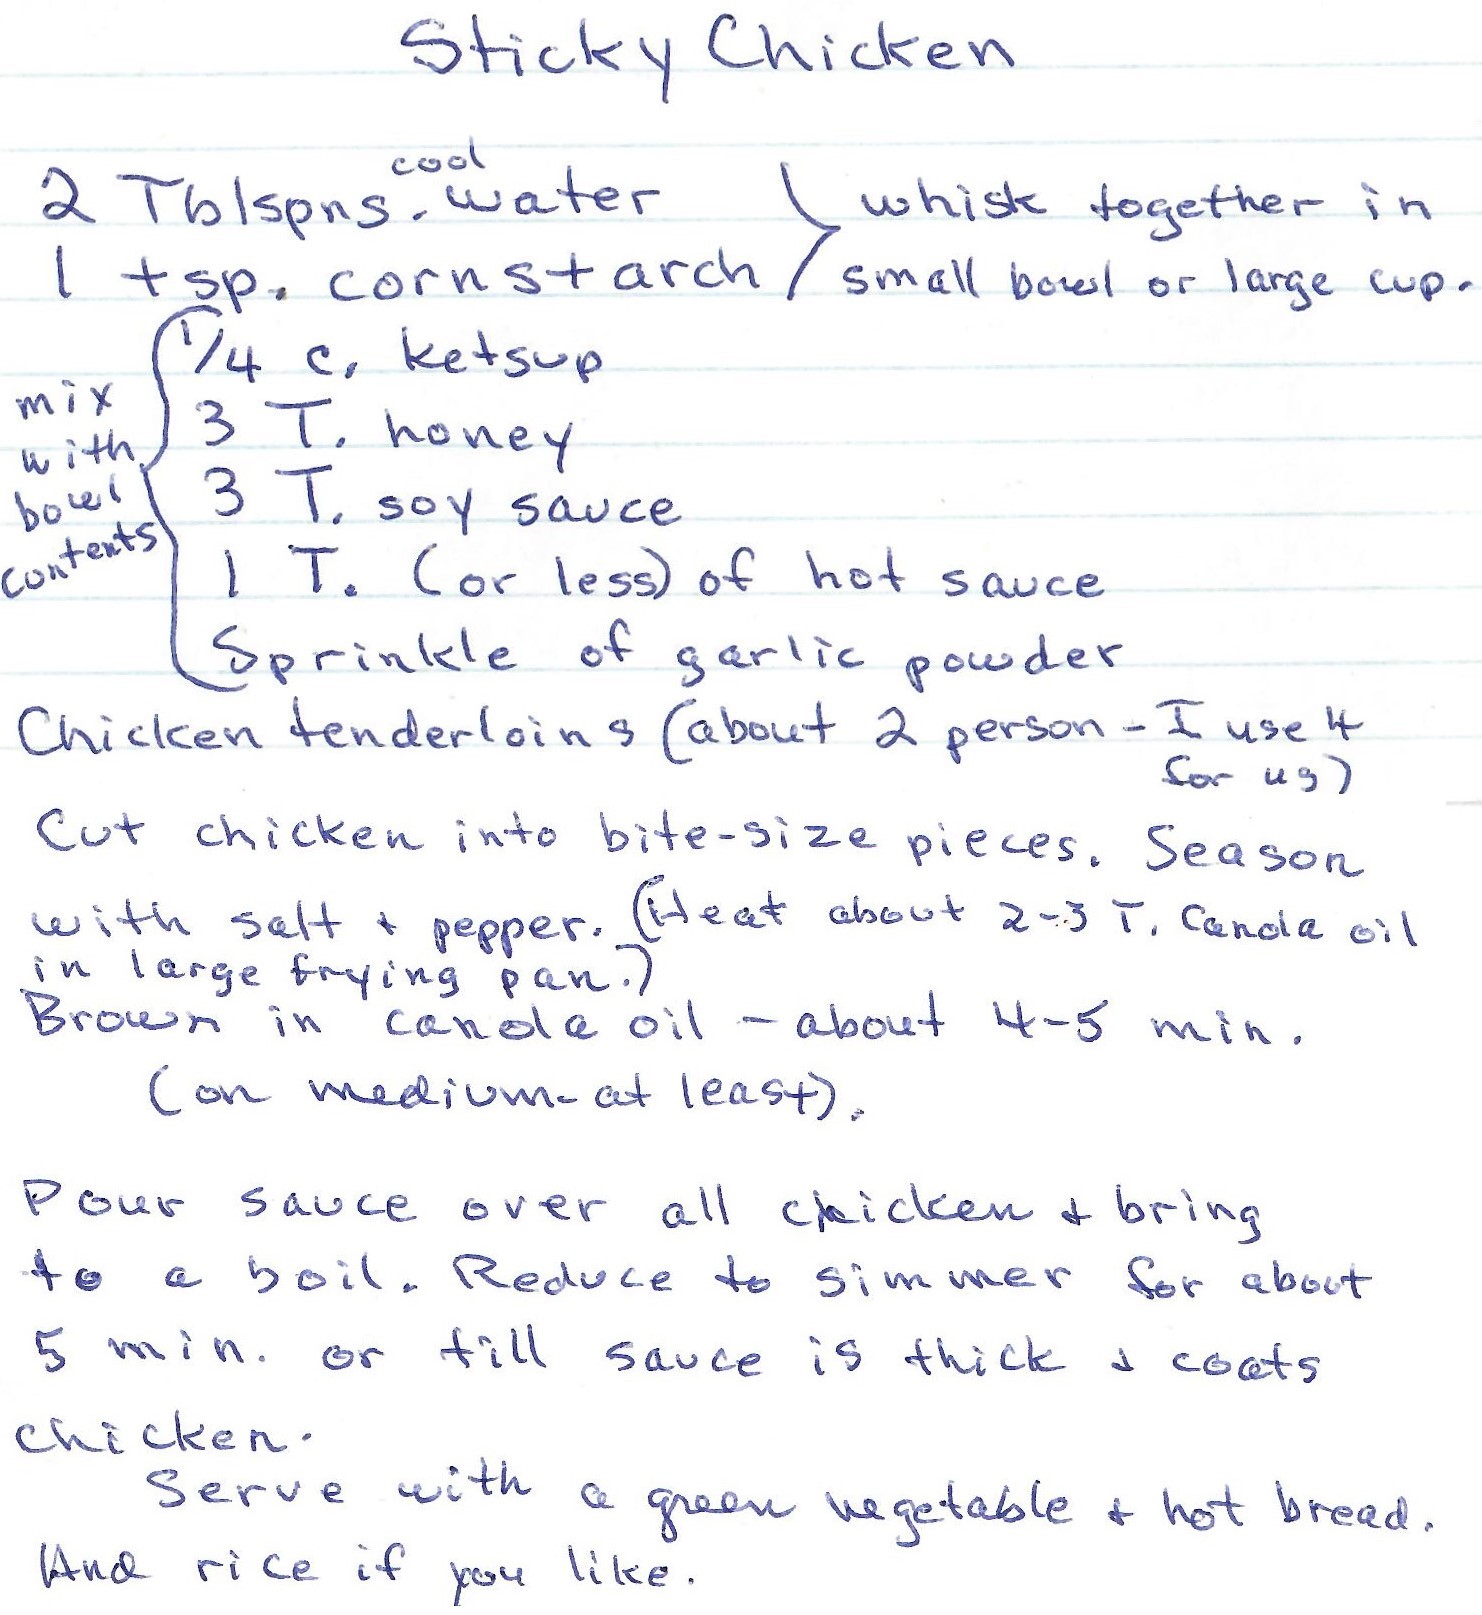 Sticky Chicken
2 Tblspns. cool water } whisk together in
1 tsp. cornstarch } small bowl or large cup.
mix with bowl contents {
1/4 c. ketsup
3 T. honey
3 T. soy sauce
1 T. (or less) of hot sauce
Sprinkle of garlic powder
Chicken tenderloins (about 2 person - I use 4
for us)
Cut chicken into bite-size pieces. Season
with salt + pepper. (Heat about 2-3 T. Canola oil
in large frying pan.)
Brown in canola oil - about 4-5 min.
(on medium - at least).
Pour sauce over all chicken + bring
to a boil. Reduce to simmer for about
5 min. or till sauce is thick + coats
chicken.
Serve with a green vegetable + hot bread.
And rice if you like.